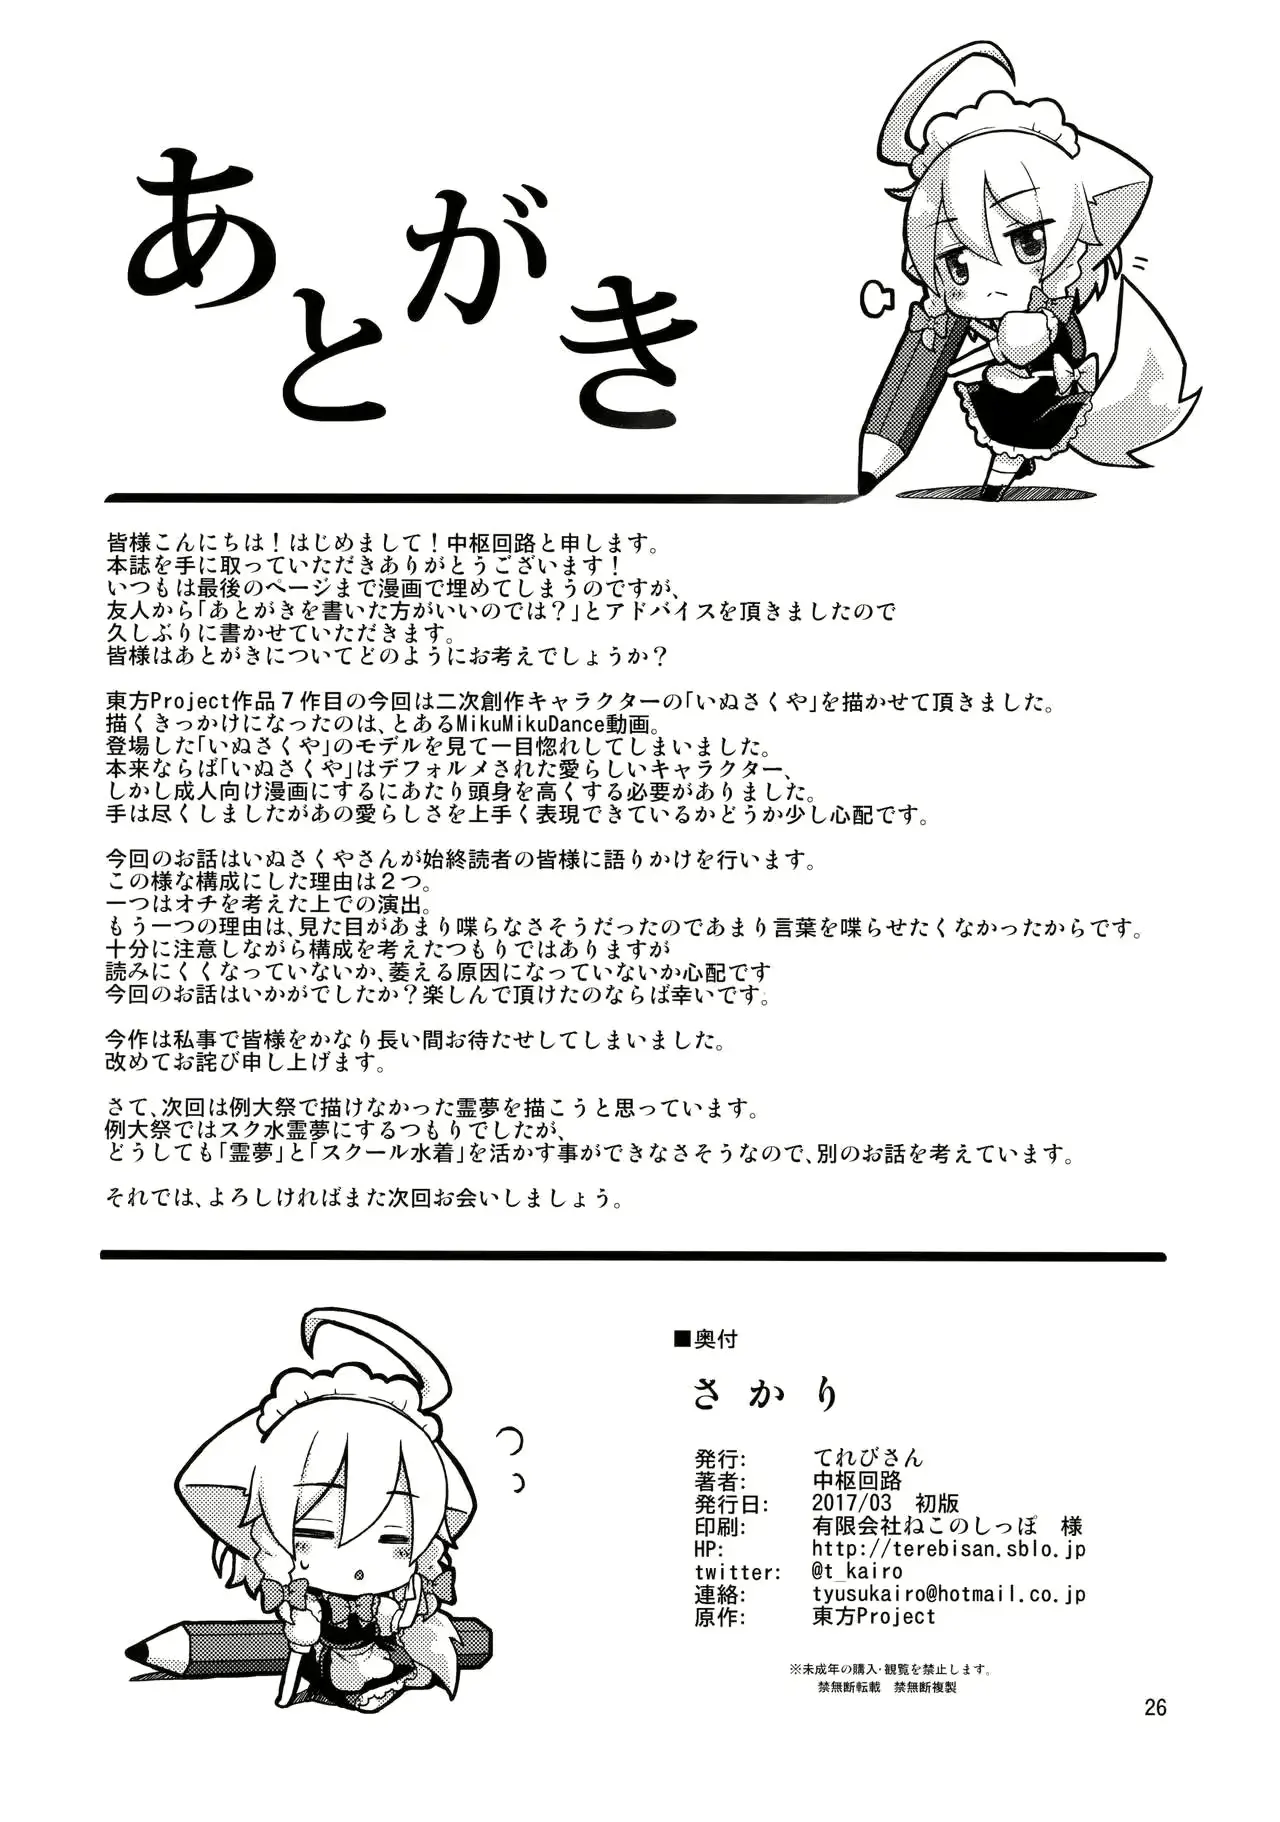 あとがき
皆様こんにちは！はじめまして！中枢回路と申します。
本誌を手に取っていただきありがとうございます！
いつもは最後のページまで漫画で埋めてしまうのですが、
友人から「あとがきを書いた方がいいのでは？」とアドバイスを頂きましたので
久しぶりに書かせていただきます。
皆様はあとがきについてどのようにお考えでしょうか？
東方Project作品７作目の今回は二次創作キャラクターの「いぬさくや」を描かせて頂きました。
描くきっかけになったのは、とあるMikuMikuDance動画。
登場した「いぬさくや」のモデルを見て一目惚れしてしまいました。
本来ならば「いぬさくや」はデフォルメされた愛らしいキャラクター、
しかし成人向け漫画にするにあたり頭身を高くする必要がありました。
手は尽くしましたがあの愛らしさを上手く表現できているかどうか少し心配です。
今回のお話はいぬさくやさんが始終読者の皆様に語りかけを行います。
この様な構成にした理由は２つ。
一つはオチを考えた上での演出。
もう一つの理由は、見た目があまり喋らなさそうだったのであまり言葉を喋らせたくなかったからです。
十分に注意しながら構成を考えたつもりではありますが
読みにくくなっていないか、萎える原因になっていないか心配です
今回のお話はいかがでしたか？楽しんで頂けたのならば幸いです。
今作は私事で皆様をかなり長い間お待たせしてしまいました。
改めてお詫び申し上げます。
さて、次回は例大祭で描けなかった霊夢を描こうと思っています。
例大祭ではスク水霊夢にするつもりでしたが、
どうしても「霊夢」と「スクール水着」を活かす事ができなさそうなので、別のお話を考えています。
それでは、よろしければまた次回お会いしましょう。
■奥付
さかり
発行: てれびさん
著者: 中枢回路
発行日: 2017/03 初版
印刷: 有限会社ねこのしっぽ 様
HP: http://terebisan.sblo.jp
twitter: @t_kairo
連絡: tyusukairo@hotmail.co.jp
原作: 東方Project
※未成年の購入・観覧を禁止します。
禁無断転載 禁無断複製
26